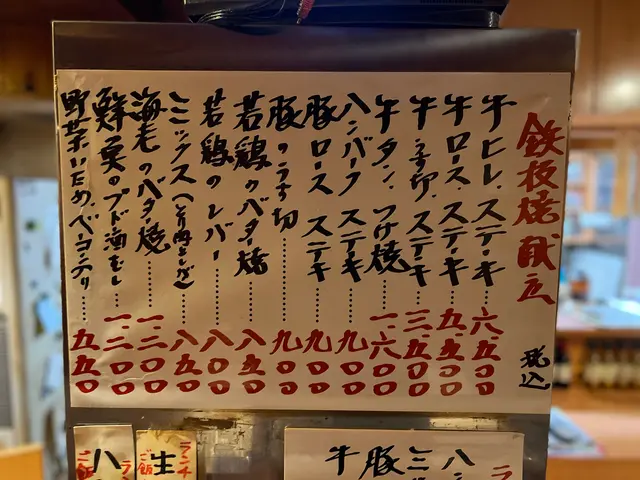 鉄板焼献立 税込
牛ヒレ、ステーキ……六、五〇〇
牛ロース、ステーキ…五、五〇〇
牛うす切、ステーキ…三、五〇〇
牛タン、つけ焼……一、六〇〇
ハンバーグ ステーキ……九〇〇
豚ロース ステーキ……九〇〇
豚のうす切……九〇〇
若鶏のバター焼……八五〇
若鶏のレバー……八〇〇
ミックス(とり肉とレバー)……八五〇
海老のバター焼……一、三〇〇
鮮貝のブドー酒むし…一、二〇〇
野菜いため、ベーコン入り…五五〇
ラ
八
三
豚
牛
ランチ
生
ご飯
ラン
ハ
ご飯